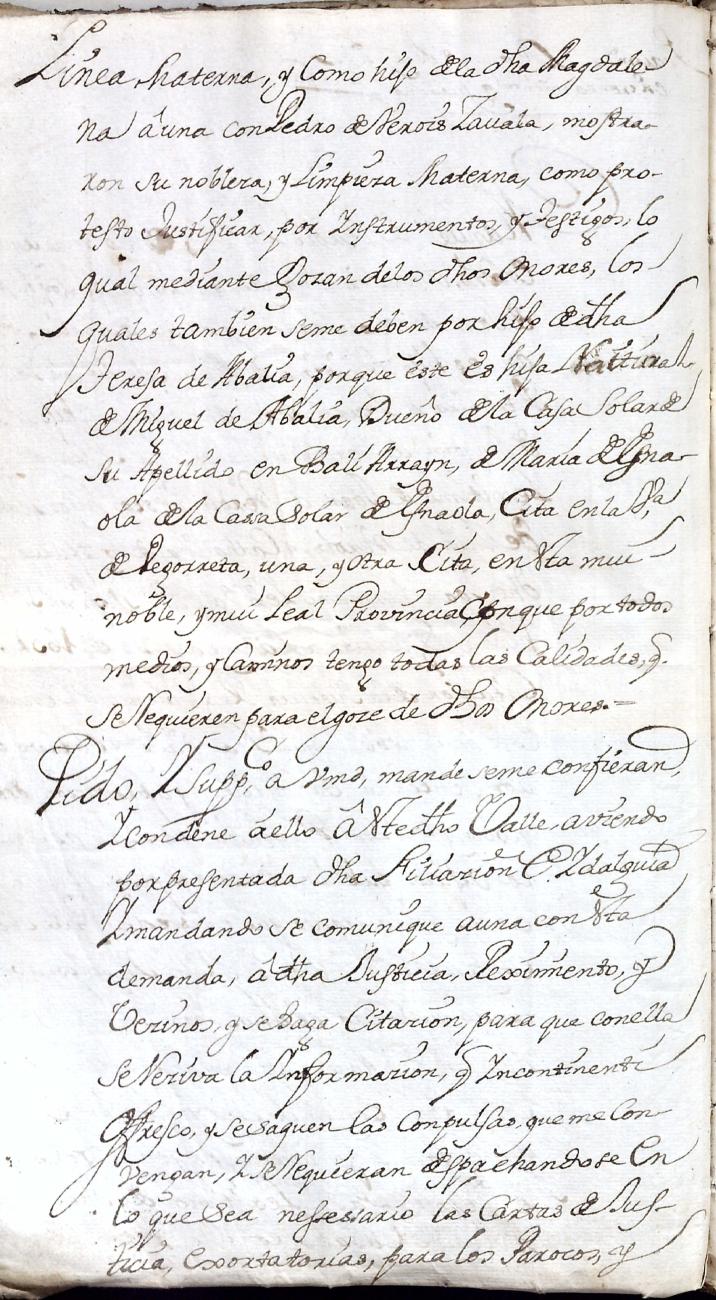 Linea Materna, y Como hijo de la dha Magdale
na â una con Pedro de Verois Zavala, mostra-
ron su nobleza, y Limpieza Materna, como pro-
testo Justificar, por Instrumentos, y Testigos, lo
qual mediante Gozan de los dhos Onores, los
quales tambien se me deben por hijo de dha
Teresa de Abalia, porque este es hija Natural
de Miguel de Abalia, Dueño de la Casa Solar de
su Apellido en Baliarrayn, de Maria de Ysna-
ola de la Casa Solar de Ysnaola, Cita en la Va
de Legorreta, una, y otra Cita, en Vta mui
noble, y mui Leal Provincia Con que por todos
medios, y Caminos tengo todas las Calidades, q.
se Requieren para el goze de dhos Onores.=
Pido, Y Suppco a Vmd, mande se me confieran,
Y condene â ello â Vte dho Valle, aviendo
por presentada dha Filiazion e Ydalguia
Y mandando se comunique a una con Vta
demanda, â dha Justicia, Reximiento, y
Vezinos, y se haga Citazion, para que con ella
se Reziva la Informazion, q Yncontinenti
Offresco, y se saquen las Conpulsas, que me Con-
vengan, Y se Requieran despachandose en
lo que sea nessesario las Cartas de Jus-
ticia, exortatorias, para los Parocos, y